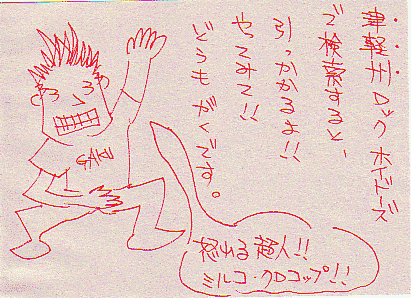 津軽弁ロック ホイドーズ
で検索すると、
引っかかるよ!!
やってみて!!
どうもがくです。
GAKU
怒れる超人!!
ミルコ・クロコップ!!